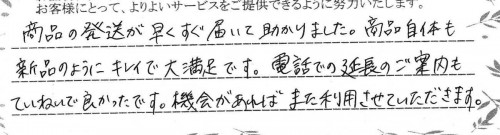 お客様にとって、よりよいサービスをご提供できるように努力いたします。
商品の発送が早くすぐ届いて助かりました。商品自体も
新品のようにキレイで大満足です。電話での延長のご案内も
ていねいで良かったです。機会があればまた利用させていただきます。